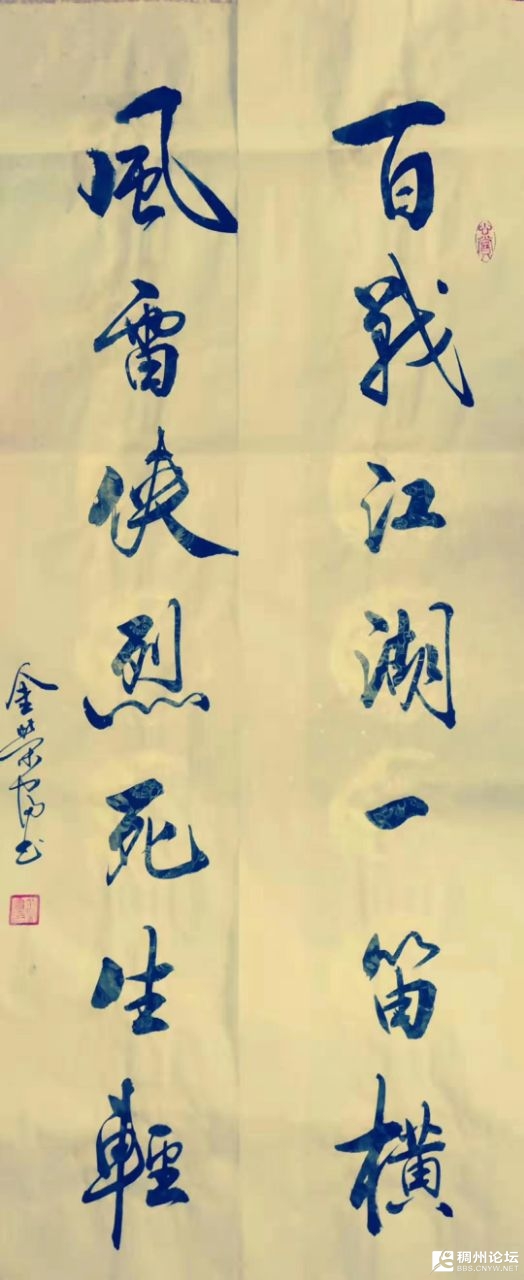 百戰江湖一笛横
風雷俠烈死生輕
金榮富书
稠州论坛
BBS.CNYW.NET